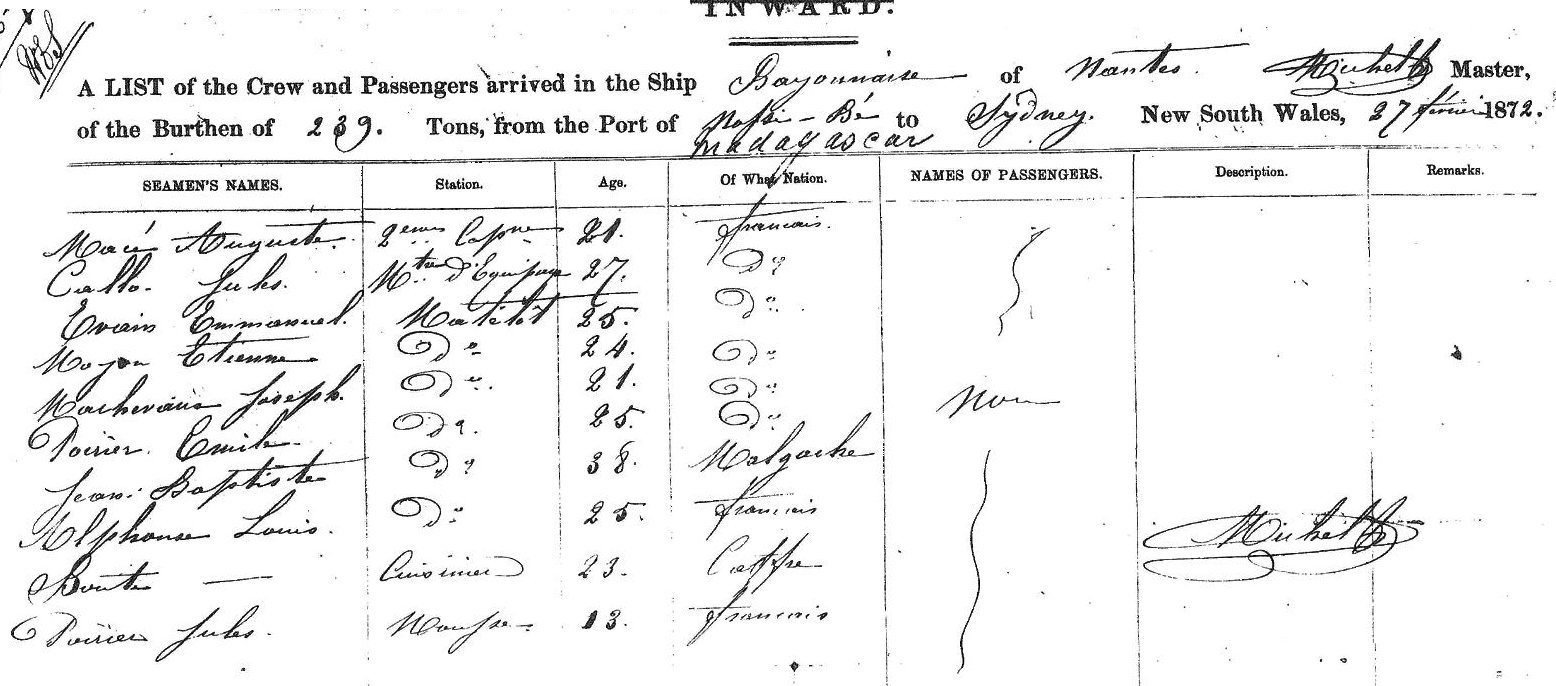 INWARD.
A LIST of the Crew and Passengers arrived in the Ship Bayonnaise of Nantes. Master,
of the Burthen of 239. Tons, from the Port of Nossi-Bé to Sydney. New South Wales, 27 février 1872.
Madagascar
SEAMEN'S NAMES. Station. Age. Of What Nation. NAMES OF PASSENGERS. Description. Remarks.
Macé Auguste. 2eme Capne 21. français.
Callo. Jules. Mtre d'Equipage 27. Do
Evain Emmanuel. Matelot 25. Do
Moyon Etienne Do 24. Do
Joseph. Do. 21. Do
Poirier. Emile. Do. 25. Do Non
Jean. Baptiste Do 38. Malgache
Alphonse Louis. Do 25. francais
Boute — Cuisinier 23. Caffre
Poirier Jules. Mousse. 13. francais